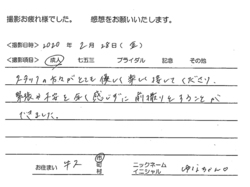 撮影お疲れ様でした。 感想をお願いいたします。
<撮影日時> 2020 年 2 月 28 日 (金)
<撮影項目> 成人 七五三 ブライダル 記念 その他
スタッフの方がとても優しく楽しい接してくださり、
緊張や不安を全く感じずに前撮りをすることが
できました。
お住まい 市 町 村 ニックネーム イニシャル